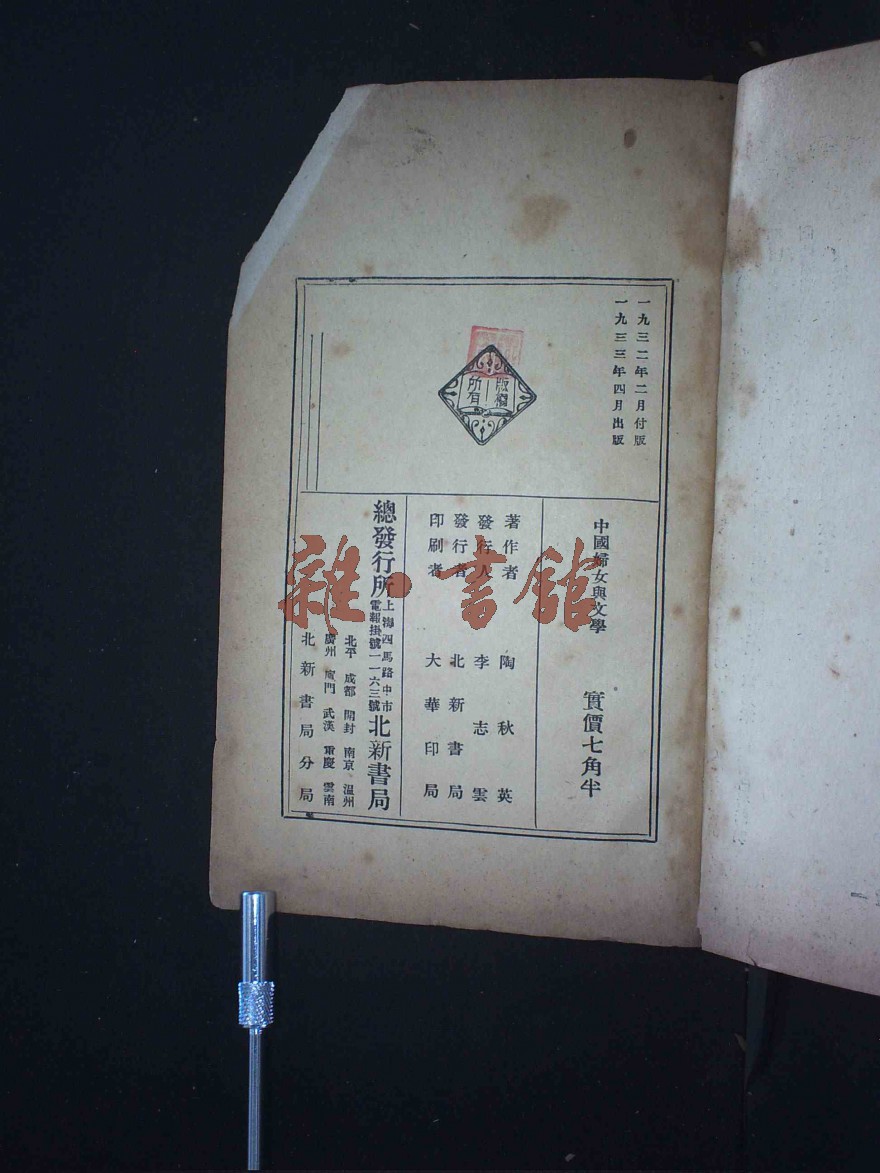 一九三二年二月付版
一九三三年四月出版
版權
所有
中國婦女與文學
實價七角半
著作者 陶秋英
發行人 李志雲
發行者 北新書局
印刷者 大華印局
總發行所 上海四馬路中市 電報掛號一一六三號 北新書局
北平 成都 開封 南京 溫州
廣州 廈門 武漢 重慶 雲南
北新書局分局
雜·書館